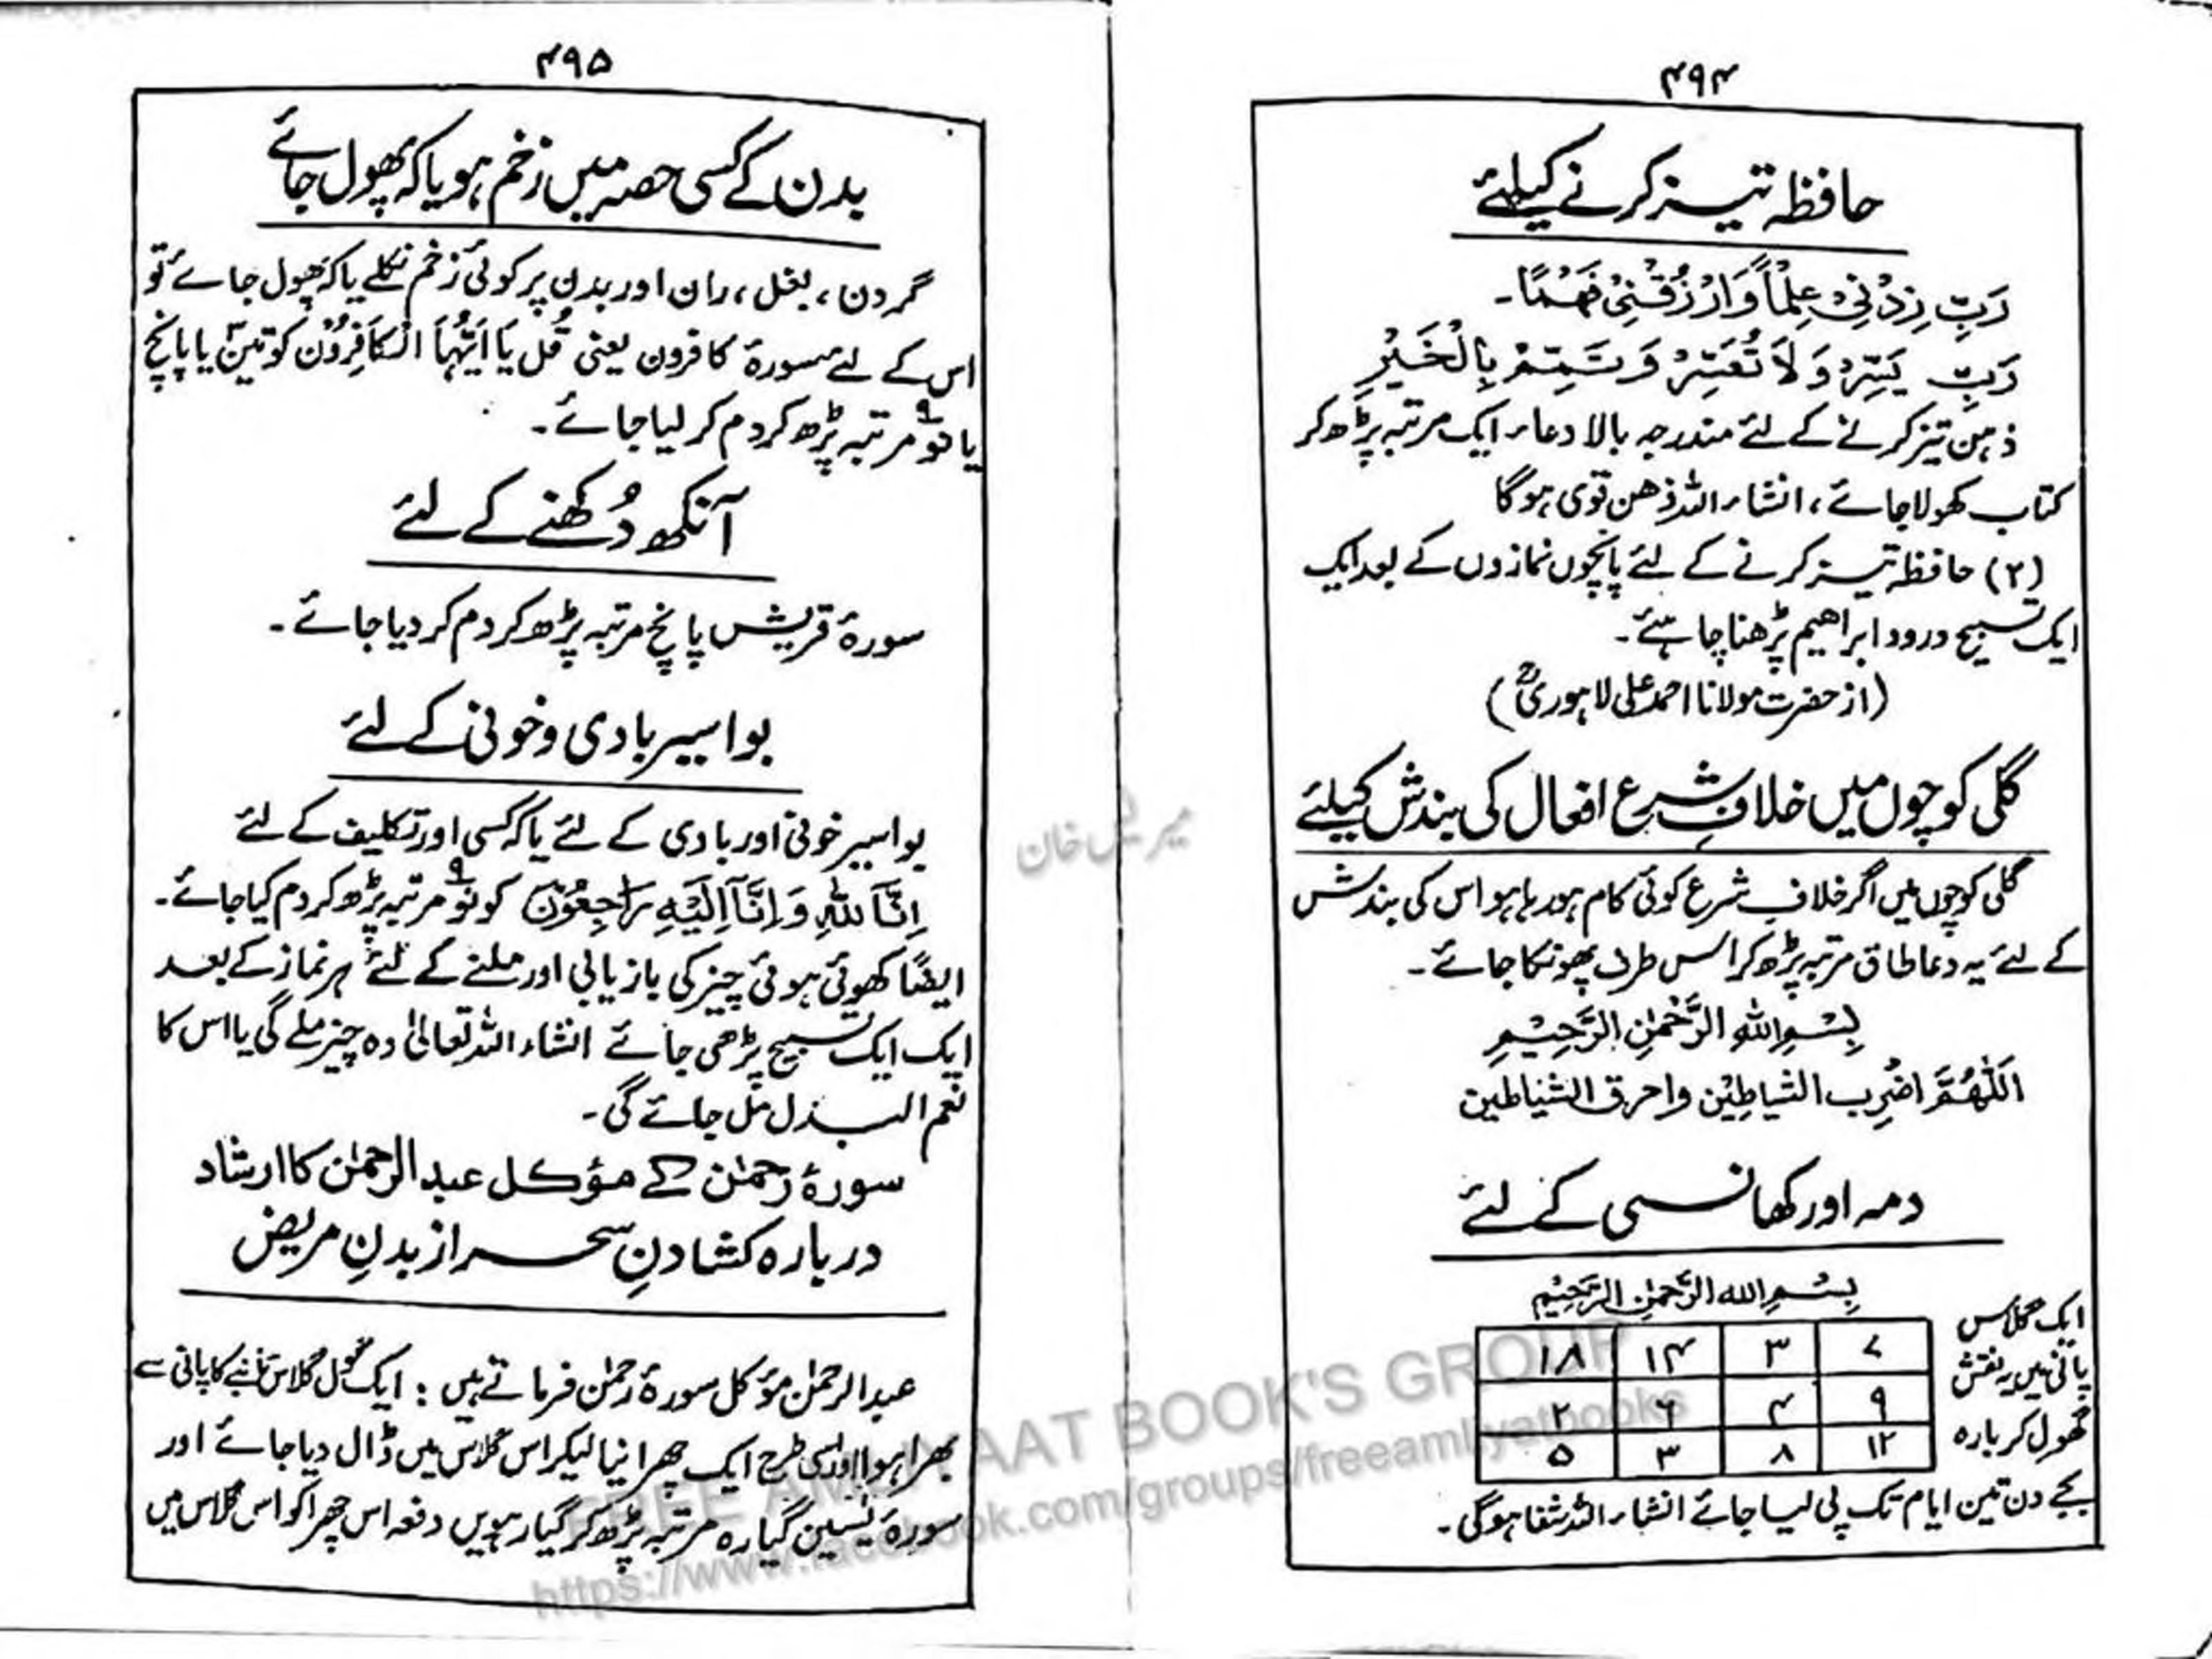 ۴۹۴
حافظہ تیز کرنے کیلئے
رَبِّ زِدْنِیْ عِلْمًا وَّارْزُقْنِیْ فَهْمًا۔
رَبِّ یَسِّرْ وَلَا تُعَسِّرْ وَتَمِّمْ بِالْخَیْرِ
ذہن تیز کرنے کے لئے مندرجہ بالا دعاء ایک مرتبہ پڑھ کر
کتاب کھولا جائے، انشاء اللہ ذھن قوی ہوگا
(۲) حافظہ تیز کرنے کے لئے پانچوں نمازوں کے بعد ایک
ایک تسبیح درود ابراھیم پڑھنا چاہئے۔
(از حضرت مولانا احمد علی لاہوریؒ)
گلی کوچوں میں خلافِ شرع افعال کی بندش کیلئے
گلی کوچوں میں اگر خلافِ شرع کوئی کام ہو رہا ہو اس کی بندش
کے لئے یہ دعا طاق مرتبہ پڑھ کر اس طرف پھونکا جائے۔
بِسْمِ اللهِ الرَّحْمٰنِ الرَّحِیْمِ
اَللّٰهُمَّ اضْرِب الشیاطِیْن واحرق الشیاطین
دمہ اور کھانسی کے لئے
بِسْمِ الله الرَّحمٰنِ الرَّحِیْم
ایک گلاس
پانی میں یہ نقش
گھول کر بارہ
۷ ۳ ۱۴ ۱۸
۹ ۴ ۶ ۲
۱۲ ۸ ۳ ۵
بجے دن تین ایام تک پی لیا جائے انشاء اللہ شفا ہوگی۔
۴۹۵
بدن کے کسی حصہ میں زخم ہو یا کہ پھول جائے
گردن، بغل، ران اور بدن پر کوئی زخم نکلے یا کہ پھول جائے تو
اس کے لئے سورۂ کافرون یعنی قُل یَا اَیُّهَا الْکَافِرُوْن کو تین۳ یا پانچ
یا نو۹ مرتبہ پڑھ کر دم کر لیا جائے۔
آنکھ دُکھنے کے لئے
سورۂ قریش پانچ مرتبہ پڑھ کر دم کر دیا جائے۔
بواسیر بادی و خونی کے لئے
بواسیر خونی اور بادی کے لئے یا کہ کسی اور تکلیف کے لئے
اِنَّا لِلّٰهِ وَاِنَّا اِلَیْهِ رَاجِعُوْنَ کو نو۹ مرتبہ پڑھ کر دم کیا جائے۔
ایضًا کھوئی ہوئی چیز کی بازیابی اور ملنے کے لئے ہر نماز کے بعد
ایک ایک تسبیح پڑھی جائے انشاء اللہ تعالیٰ وہ چیز ملے گی یا اس کا
نعم البدل مل جائے گی۔
سورۂ رحمٰن کے مؤکل عبدالرحمٰن کا ارشاد
دربارہ کشادنِ سحر از بدنِ مریض
عبدالرحمٰن مؤکل سورۂ رحمٰن فرماتے ہیں: ایک گول گلاس تانبے کا پانی سے
بھرا ہوا اور اسی طرح ایک چھرا نیا لیکر اس گلاس میں ڈال دیا جائے اور
سورۂ یٰسین گیارہ مرتبہ پڑھ کر گیارہویں دفعہ اس چھرا کو اس گلاس میں
FREE AMLIYAAT BOOK'S GROUP
https://www.facebook.com/groups/freeamliyatbooks